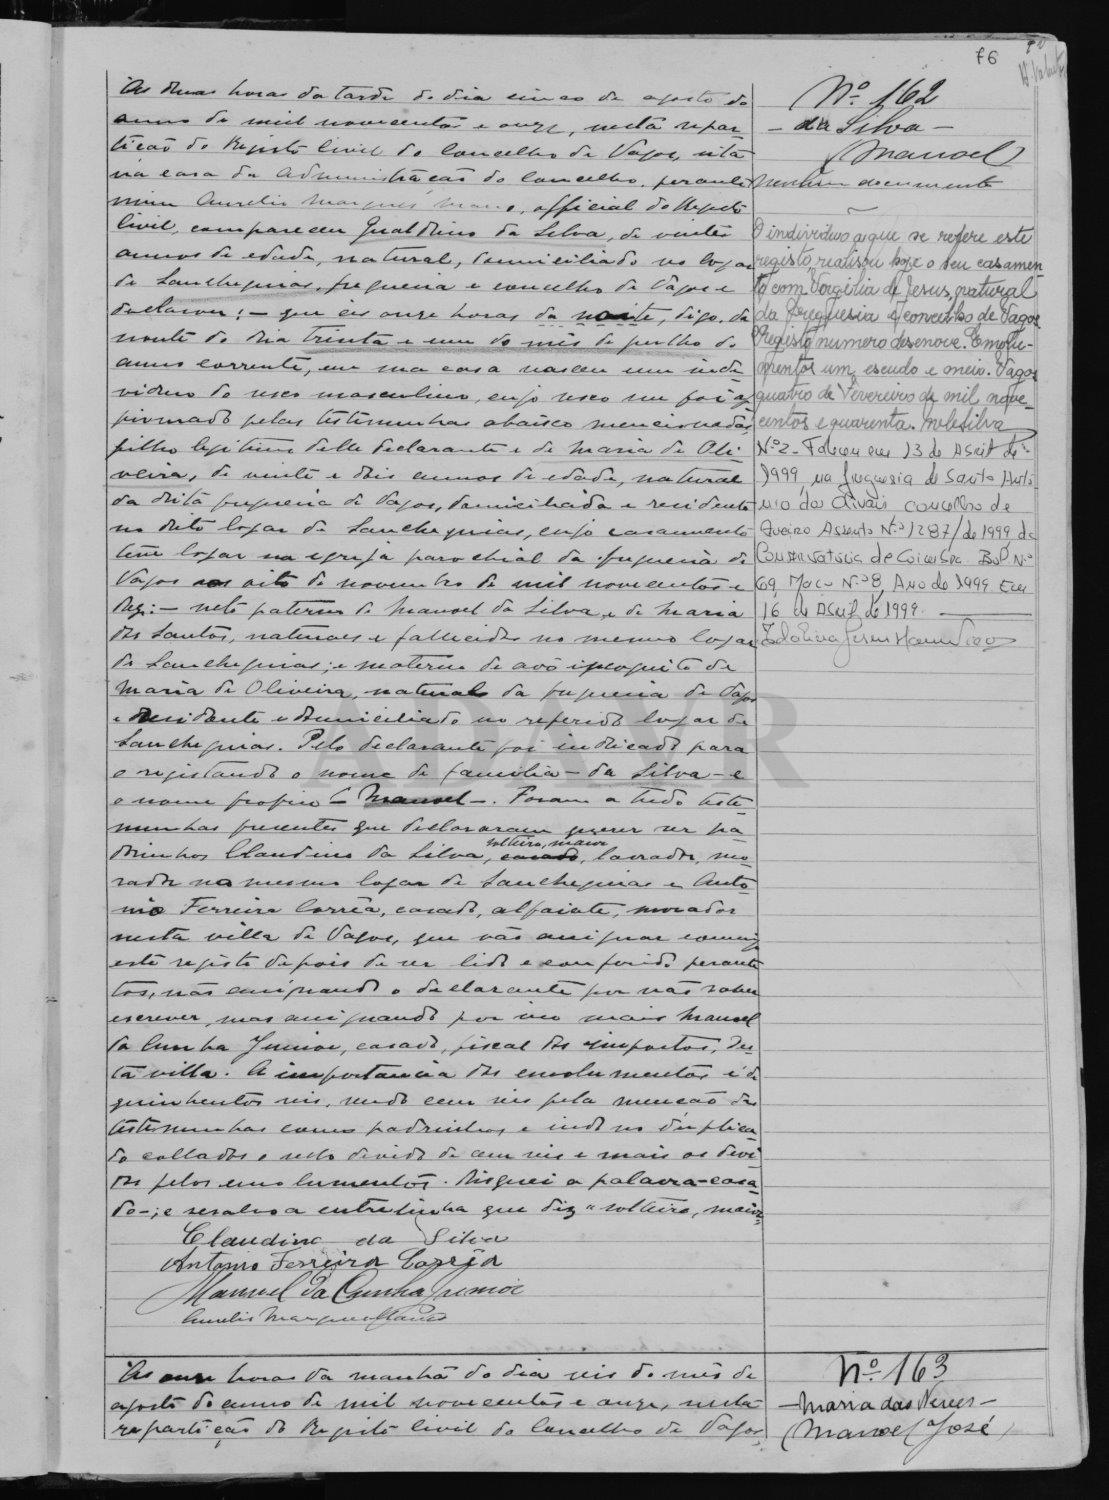 76
Nº 162
- da Silva -
Manoel
Nenhum documento
Ás duas horas da tarde do dia cinco de agosto do
anno de mil novecentos e onze, nesta repar
tição do Registo Civil do Concelho de Vagos, sita
na casa da Administração do Concelho, perante
mim Aurelio Marques Mano, official do Registo
Civil, compareceu Gualdino da Silva, de vinte
annos de edade, natural, domiciliado no logar
de Lanchequias, freguezia e concelho de Vagos e
declarou: - que ás onze horas da noite, digo, da
noute do dia trinta e um do mês de julho do
anno corrente, em sua casa nasceu um indi
viduo do sexo masculino, cujo sexo me foi af
firmado pelas testemunhas abaixo mencionadas,
filho legitimo delle declarante e de Maria de Oli
veira, de vinte e dois annos de edade, natural
da dita freguezia de Vagos, domiciliada e residente
no dito logar de Lanchequias, cujo casamento
teve logar na egreja parochial da freguezia de
Vagos aos oito de novembro de mil novecentos e
dez: - neto paterno de Manoel da Silva, e de Maria
dos Santos, naturaes e fallecidos no mesmo logar
de Lanchequias; e materno de avô incognito e de
Maria de Oliveira, natural da freguezia de Vagos
e residente e domiciliada no referido logar de
Lanchequias. Pelo declarante foi indicado para
o registando o nome de familia - da Silva - e
o nome proprio - Manoel -. Foram a tudo teste
munhas presentes que declararam querer ser pa
drinhos Claudino da Silva, casado, lavrador, mo
solteiro, maior
rador no mesmo logar de Lanchequias e Anto
nio Ferreira Corrêa, casado, alfaiate, morador
nesta villa de Vagos, que vão assignar comigo
este registo depois de ser lido e conferido perante
tos, não assignando o declarante por não saber
escrever, mas assignando por isso mais Manoel
da Cunha Junior, casado, fiscal dos impostos, des
ta villa. A importancia dos emolumentos é de
quinhentos reis, sendo cem reis pela menção das
testemunhas como padrinhos e indo no duplica
do collados o sello devido de cem reis e mais os devi
dos pelos emolumentos. Risquei a palavra - casa
do -; e resalvo a entrelinha que diz "solteiro, maior"
Claudino da Silva
Antonio Ferreira Corrêa
Manuel da Cunha Junior
Aurelio Marques Mano
O individuo a que se refere este
registo, realisou hoje o seu casamen-
to com Vergilia de Jesus, natural
da freguesia e concelho de Vagos.
Registo numero desenove. Emolu-
mentos um escudo e meio. Vagos
quatro de Fevereiro de mil nove-
centos e quarenta.
Nº 2 - Faleceu em 13 de Abril de
1999 na freguesia de Santo Antó-
nio dos Olivais concelho de
Assento Nº 1287/ de 1999 da
Conservatória de Coimbra. Bol. Nº
69, Maço Nº 8, Ano de 1999 Em
16 de Abril de 1999.
ADAVR
Ás onze horas da manhã do dia seis do mês de
agosto do anno de mil novecentos e onze, nesta
repartição do Registo Civil do Concelho de Vagos,
Nº 163
- Maria das Neves -
Manoel José